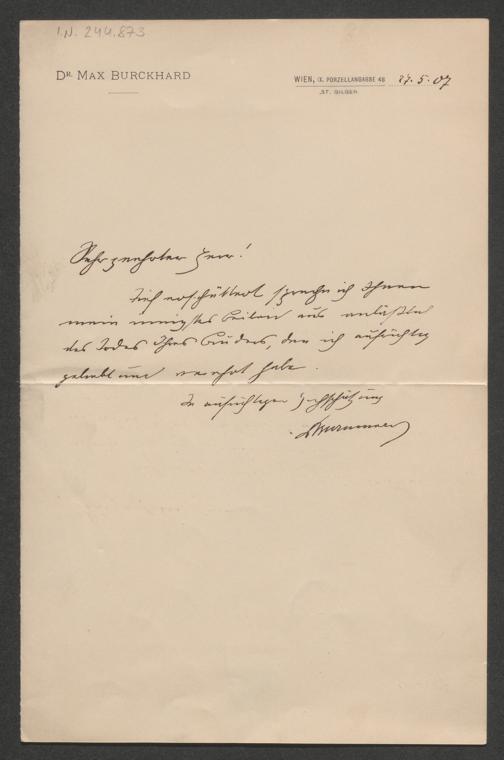 I.N. 244.873
DR. MAX BURCKHARD
WIEN, IX. PORZELLANGASSE 48 27.5.07
ST. GILGEN
Sehr geehrter Herr!
Tief erschüttert spreche ich Ihnen
mein innigstes Beileid aus anläßlich
des Todes Ihres Bruders, den ich aufrichtig
geliebt und verehrt habe.
In aufrichtiger Hochschätzung